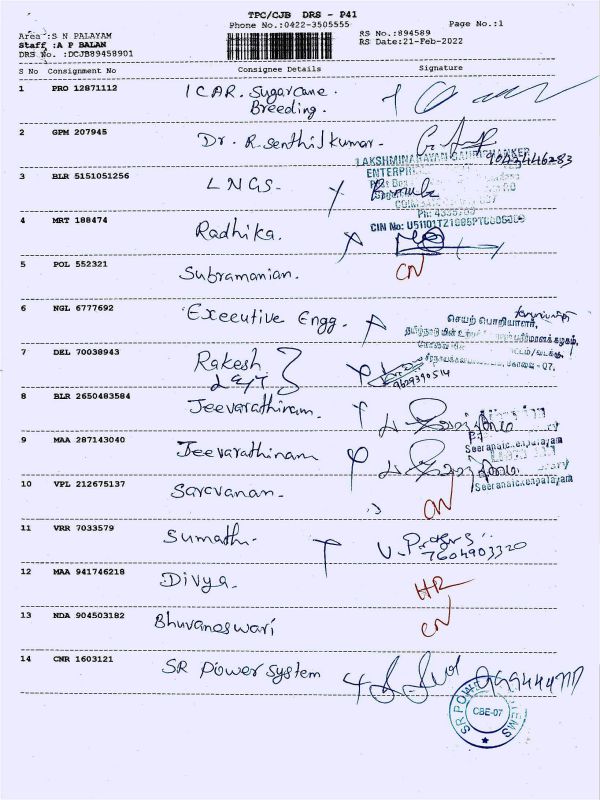 TPC/CJB DRS - P41
Phone No.:0422-3505555
Page No.:1
Area :S N PALAYAM
RS No.:894589
Staff :A P BALAN
RS Date:21-Feb-2022
DRS No. :DCJB89458901
S No Consignment No Consignee Details Signature
1 PRO 12871112 ICAR. Sugarcane.
Breeding.
2 GPM 207945 Dr. R. Senthilkumar.
LAKSHMINARAYAN
ENTERPRI
3 BLR 5151051256 LNGS.
4 MRT 188474 Radhika.
CIN No:
5 POL 552321 Subramanian. CN
6 NGL 6777692 Executive Engg.
செயற் பொறியாளர்,
7 DEL 70038943 Rakesh
9629390514
8 BLR 2650483584 Jeevarathinam.
9 MAA 287143040 Jeevarathinam
Seeranaickenpalayam
10 VPL 212675137 Saravanan. CN
11 VRR 7033579 Sumathi.
7604903320
12 MAA 941746218 Divya. HR
13 NDA 904503182 Bhuvaneswari CN
14 CNR 1603121 SR Power System
SR POWER SYSTEMS
CBE-07